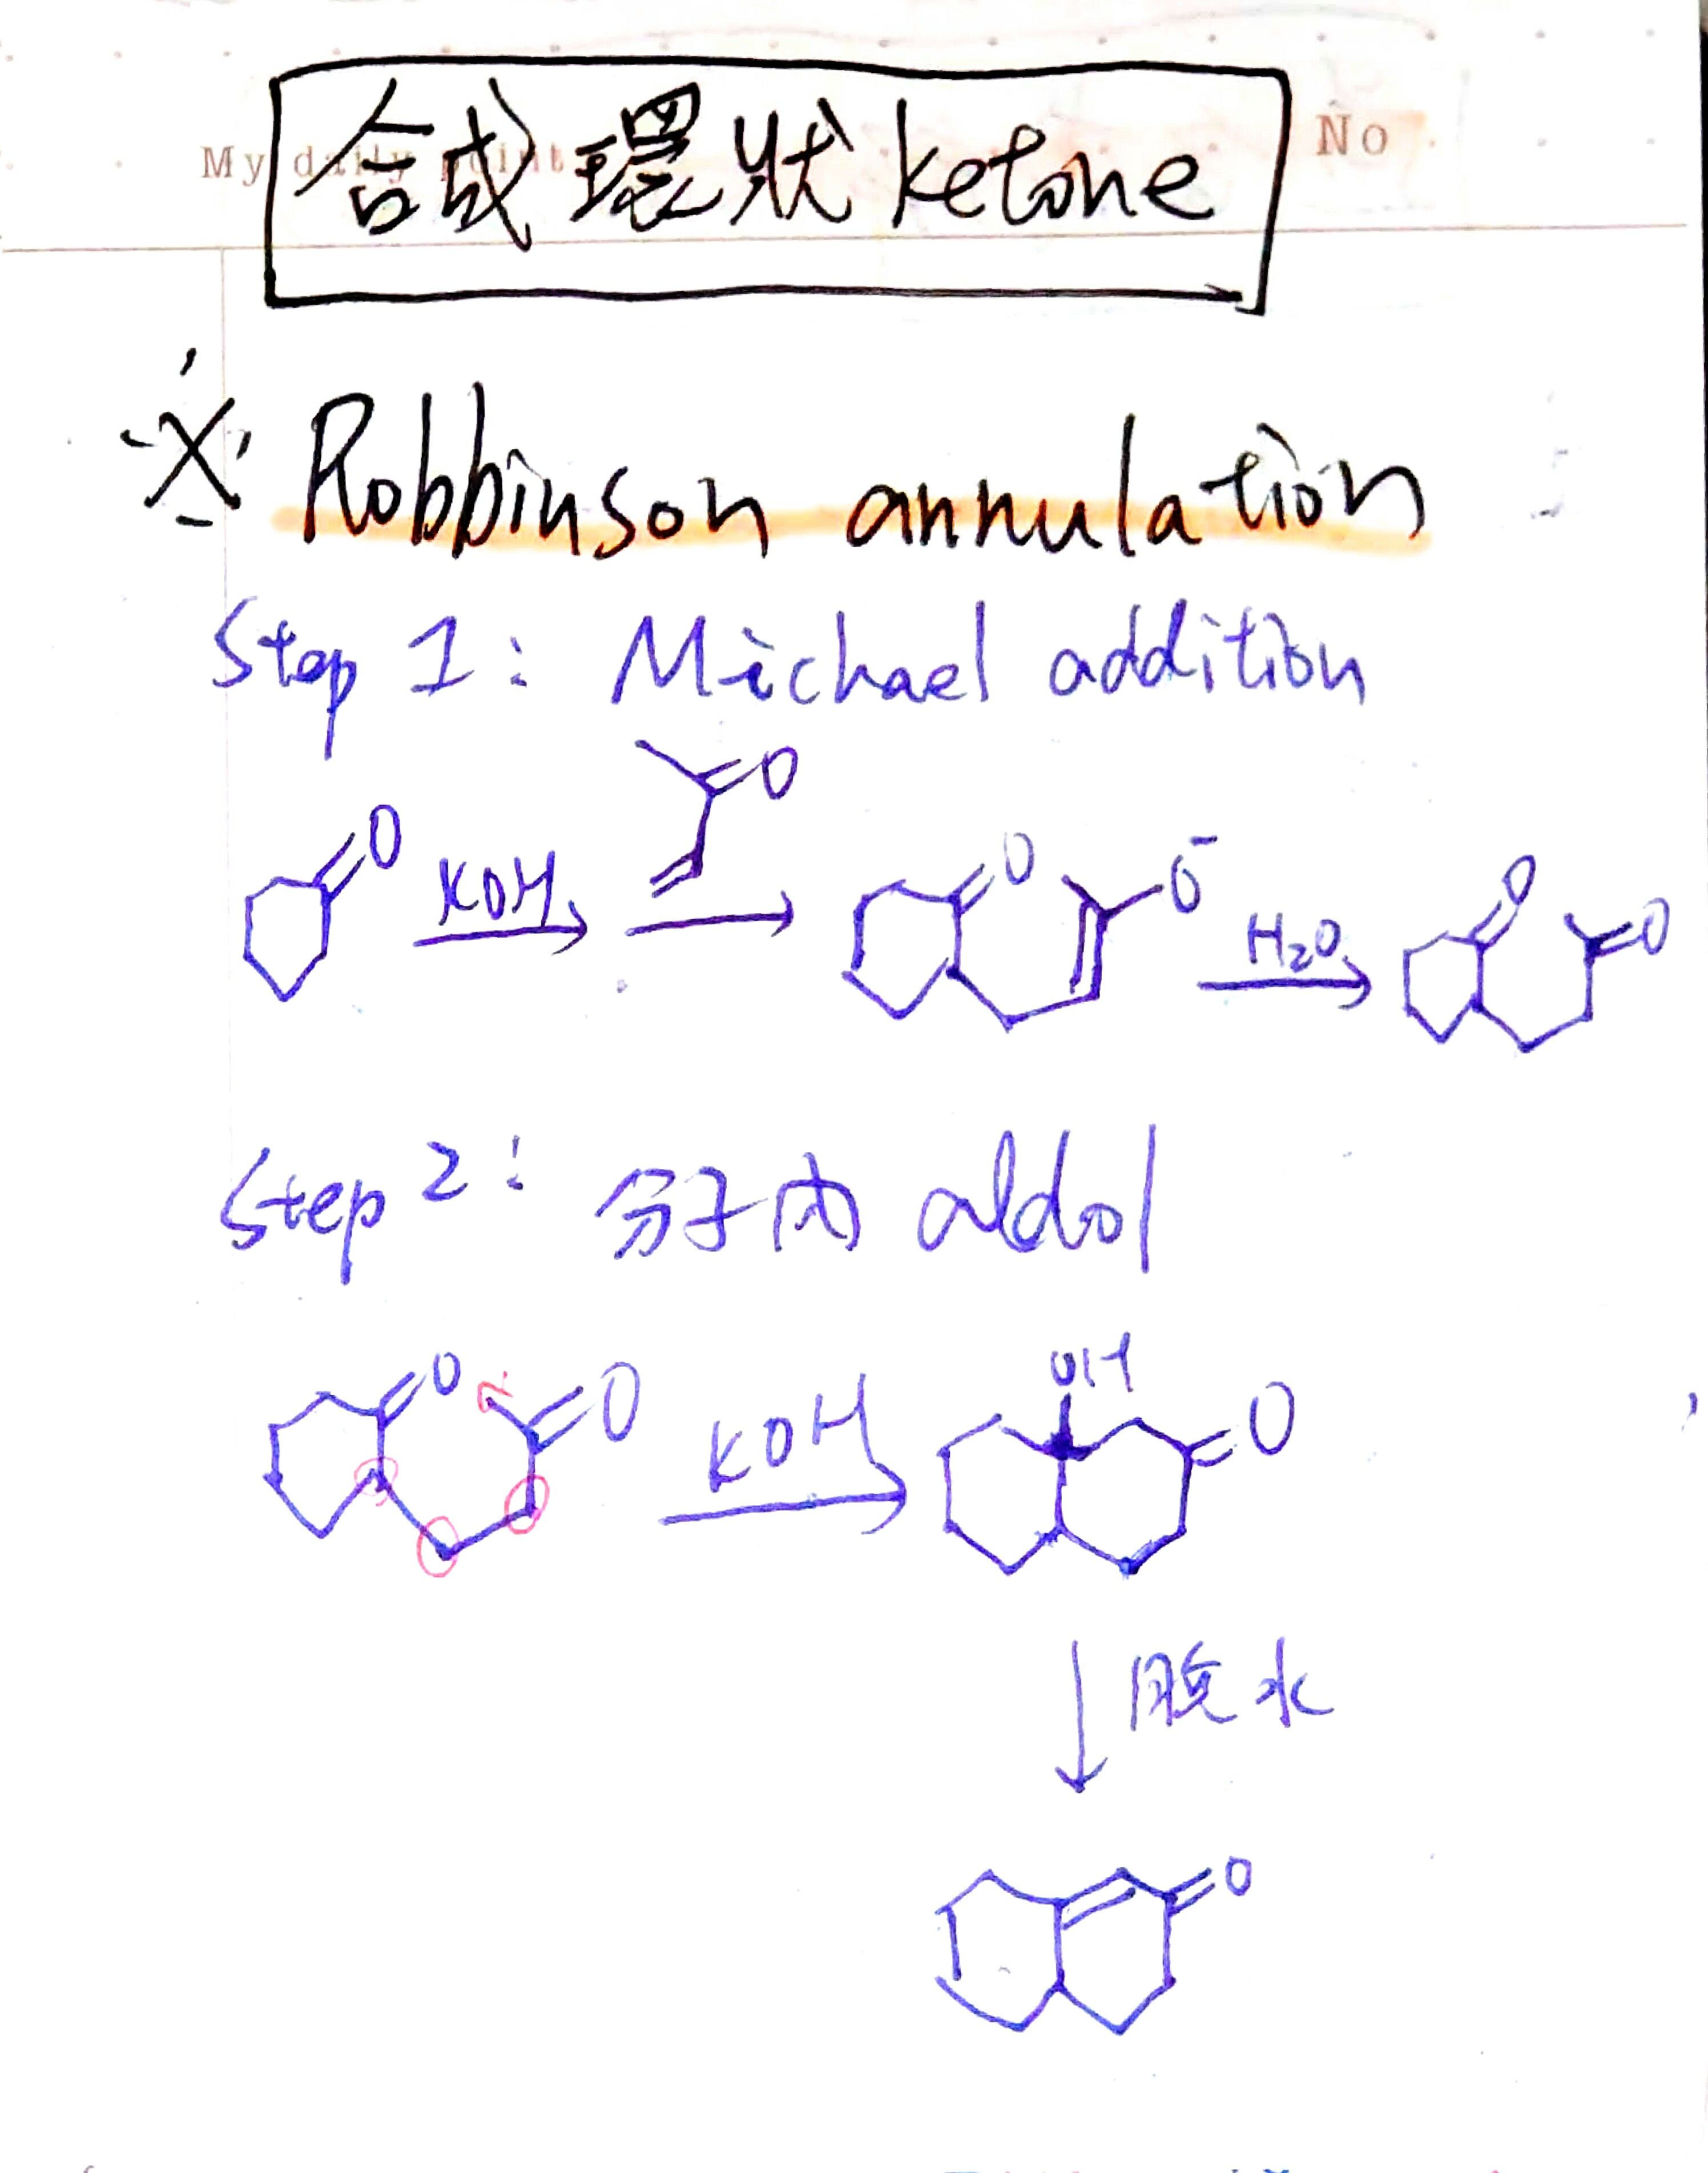 My daily
No
合成環狀 ketone
Robbinson annulation
Step 1: Michael addition
O
O KOH O O⁻ H₂O O O
Step 2: 分子內 aldol
OH
O O KOH O
脫水
O